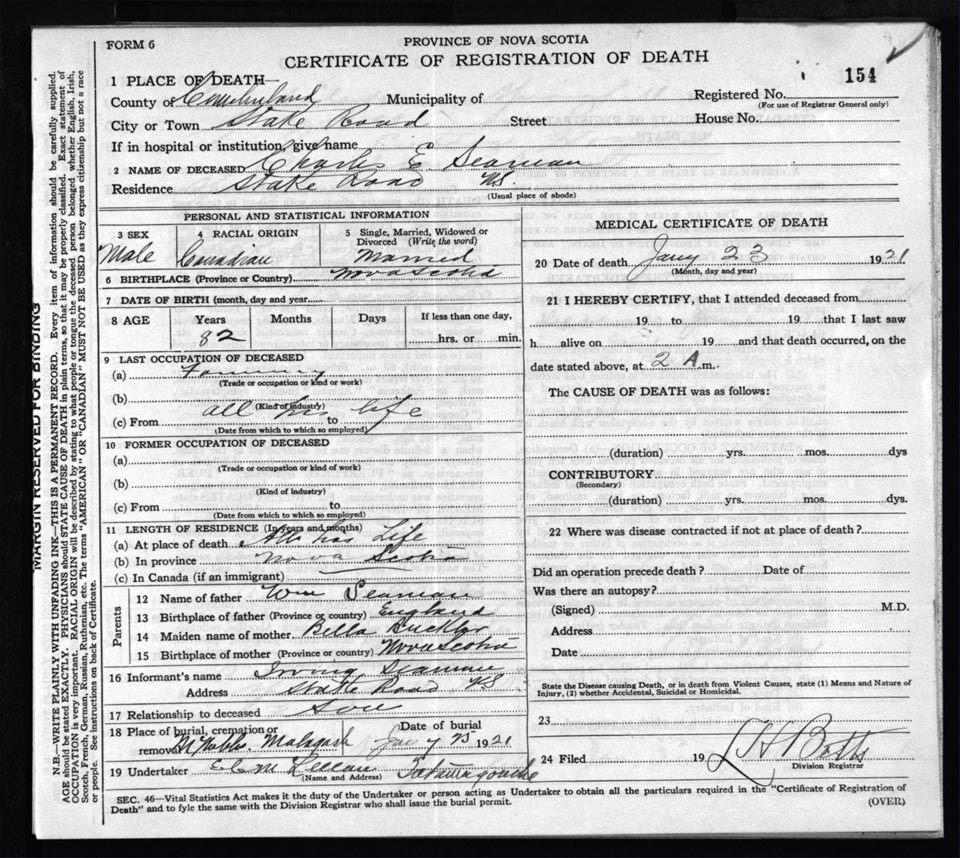 FORM 6
PROVINCE OF NOVA SCOTIA
CERTIFICATE OF REGISTRATION OF DEATH
154
1 PLACE OF DEATH—
County of Cumberland Municipality of Registered No.
(For use of Registrar General only)
City or Town Stake Road Street House No.
If in hospital or institution, give name
2 NAME OF DECEASED Charles E. Seaman
Residence Stake Road NS.
(Usual place of abode)
PERSONAL AND STATISTICAL INFORMATION
3 SEX 4 RACIAL ORIGIN 5 Single, Married, Widowed or Divorced (Write the word)
Male Canadian Married
6 BIRTHPLACE (Province or Country) Nova Scotia
7 DATE OF BIRTH (month, day and year)
8 AGE Years Months Days If less than one day,
82 hrs. or min.
9 LAST OCCUPATION OF DECEASED
(a) Farming
(Trade or occupation or kind or work)
(b)
(Kind of industry)
(c) From all his life to
(Date from which to which so employed)
10 FORMER OCCUPATION OF DECEASED
(a)
(Trade or occupation or kind of work)
(b)
(Kind of industry)
(c) From to
(Date from which to which so employed)
11 LENGTH OF RESIDENCE (In years and months)
(a) At place of death All his Life
(b) In province Nova Scotia
(c) In Canada (if an immigrant)
Parents
12 Name of father Wm Seaman
13 Birthplace of father (Province or country) England
14 Maiden name of mother Bella
15 Birthplace of mother (Province or country) Nova Scotia
16 Informant's name Irving Seaman
Address Stake Road NS
17 Relationship to deceased Son
18 Place of burial, cremation or removal Malagash
Date of burial Jany 25 1921
19 Undertaker Tatamagouche
(Name and Address)
MEDICAL CERTIFICATE OF DEATH
20 Date of death Jany 23 1921
(Month, day and year)
21 I HEREBY CERTIFY, that I attended deceased from
19 to 19 that I last saw
h alive on 19 and that death occurred, on the
date stated above, at 2 A. m.
The CAUSE OF DEATH was as follows:
(duration) yrs. mos. dys
CONTRIBUTORY
(Secondary)
(duration) yrs. mos. dys.
22 Where was disease contracted if not at place of death?
Did an operation precede death? Date of
Was there an autopsy?
(Signed) M.D.
Address
Date
State the Disease causing Death, or in death from Violent Causes, state (1) Means and Nature of
Injury, (2) whether Accidental, Suicidal or Homicidal.
23
24 Filed 19 Division Registrar
SEC. 46—Vital Statistics Act makes it the duty of the Undertaker or person acting as Undertaker to obtain all the particulars required in the "Certificate of Registration of
Death" and to fyle the same with the Division Registrar who shall issue the burial permit.
(OVER)
MARGIN RESERVED FOR BINDING
N.B.—WRITE PLAINLY WITH UNFADING INK—THIS IS A PERMANENT RECORD. Every item of information should be carefully supplied.
AGE should be stated EXACTLY. PHYSICIANS should STATE CAUSE OF DEATH in plain terms, so that it may be properly classified. Exact statement of
OCCUPATION is very important. RACIAL ORIGIN will be described by stating to what people or tongue the deceased person belonged whether English, Irish,
Scotch, French, German, Russian, Ruthenian, etc. The terms "AMERICAN" OR "CANADIAN" MUST NOT BE USED as they express citizenship but not a race
or people. See instructions on back of Certificate.